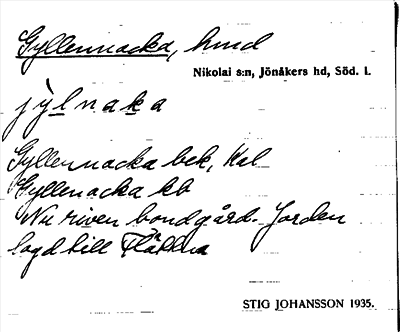 Gyllennacka, hmd
Nikolai s:n, Jönåkers hd, Söd. l.
jy̱lnaḵa
Gyllennacka bek, Kal
Gyllenacka kb
Nu riven bondgård. Jorden
lagd till
STIG JOHANSSON 1935.